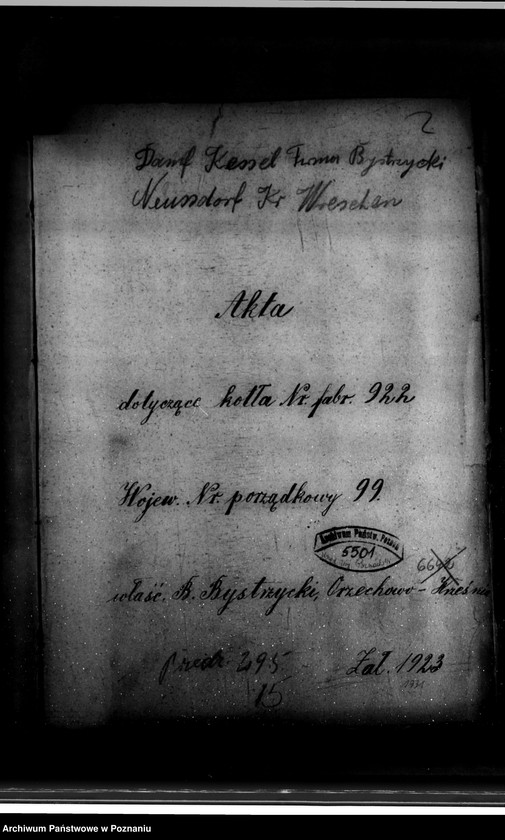 2
Damf Kessel Firma Bystrzycki
Neussdorf Kr Wreschen
Akta
dotyczące kotła Nr. fabr. 922
Wojew. Nr. porządkowy 99.
Archiwum Państw. Poznań
5501
właśc. B. Bystrzycki, Orzechowo-
495
Zał. 1923
15
Archiwum Państwowe w Poznaniu